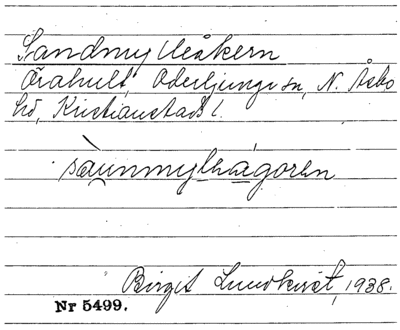 Sandmylleåkern
Örahult, Oderljunga sn, N. Åsbo
hd, Kristianstads l.
Birgit Lundkvist, 1938.
Nr 5499.